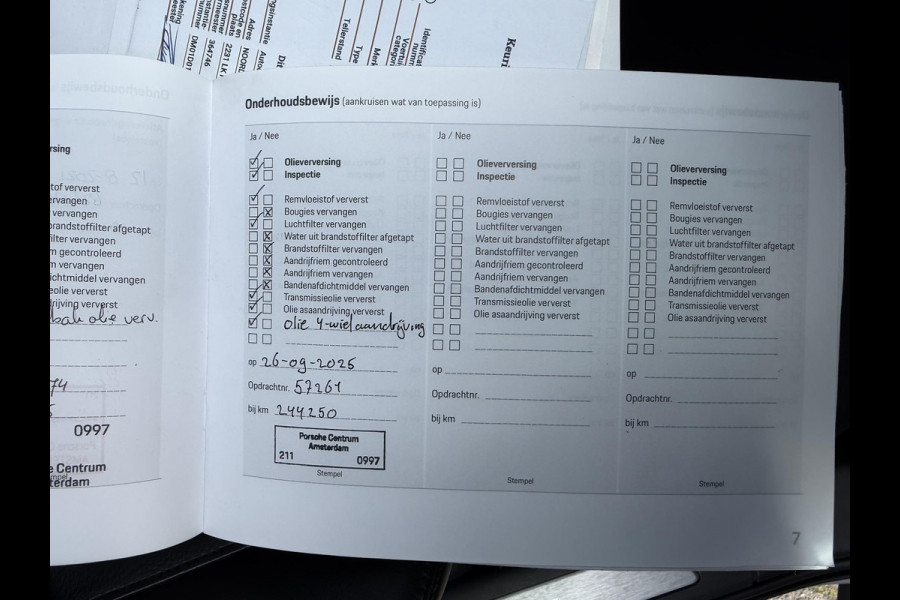 Keuri
Identificat
numm
Voertui
catego
Merk
Type
Tellerstand
Dit
Auto
NOORD
2231 LK
364746
DM01D01
Adres
Onderhoudsbewijs (aankruisen wat van toepassing is)
Ja / Nee
Olieverversing
Inspectie
Remvloeistof ververst
Bougies vervangen
Luchtfilter vervangen
Water uit brandstoffilter afgetapt
Brandstoffilter vervangen
Aandrijfriem gecontroleerd
Aandrijfriem vervangen
Bandenafdichtmiddel vervangen
Transmissieolie ververst
Olie asaandrijving ververst
olie 4-wielaandrijving
op 26-09-2025
Opdrachtnr. 57261
bij km 244250
Porsche Centrum
Amsterdam
211 0997
Stempel
Ja / Nee
Olieverversing
Inspectie
Remvloeistof ververst
Bougies vervangen
Luchtfilter vervangen
Water uit brandstoffilter afgetapt
Brandstoffilter vervangen
Aandrijfriem gecontroleerd
Aandrijfriem vervangen
Bandenafdichtmiddel vervangen
Transmissieolie ververst
Olie asaandrijving ververst
op
Opdrachtnr.
bij km
Stempel
Ja / Nee
Olieverversing
Inspectie
Remvloeistof ververst
Bougies vervangen
Luchtfilter vervangen
Water uit brandstoffilter afgetapt
Brandstoffilter vervangen
Aandrijfriem gecontroleerd
Aandrijfriem vervangen
Bandenafdichtmiddel vervangen
Transmissieolie ververst
Olie asaandrijving ververst
op
Opdrachtnr.
bij km
Stempel
7
rsing
tof ververst
ervangen
vervangen
brandstoffilter afgetapt
ilter vervangen
m gecontroleerd
m vervangen
dichtmiddel vervangen
eolie ververst
ijving ververst
bak olie verv.
74
0997
e Centrum
terdam